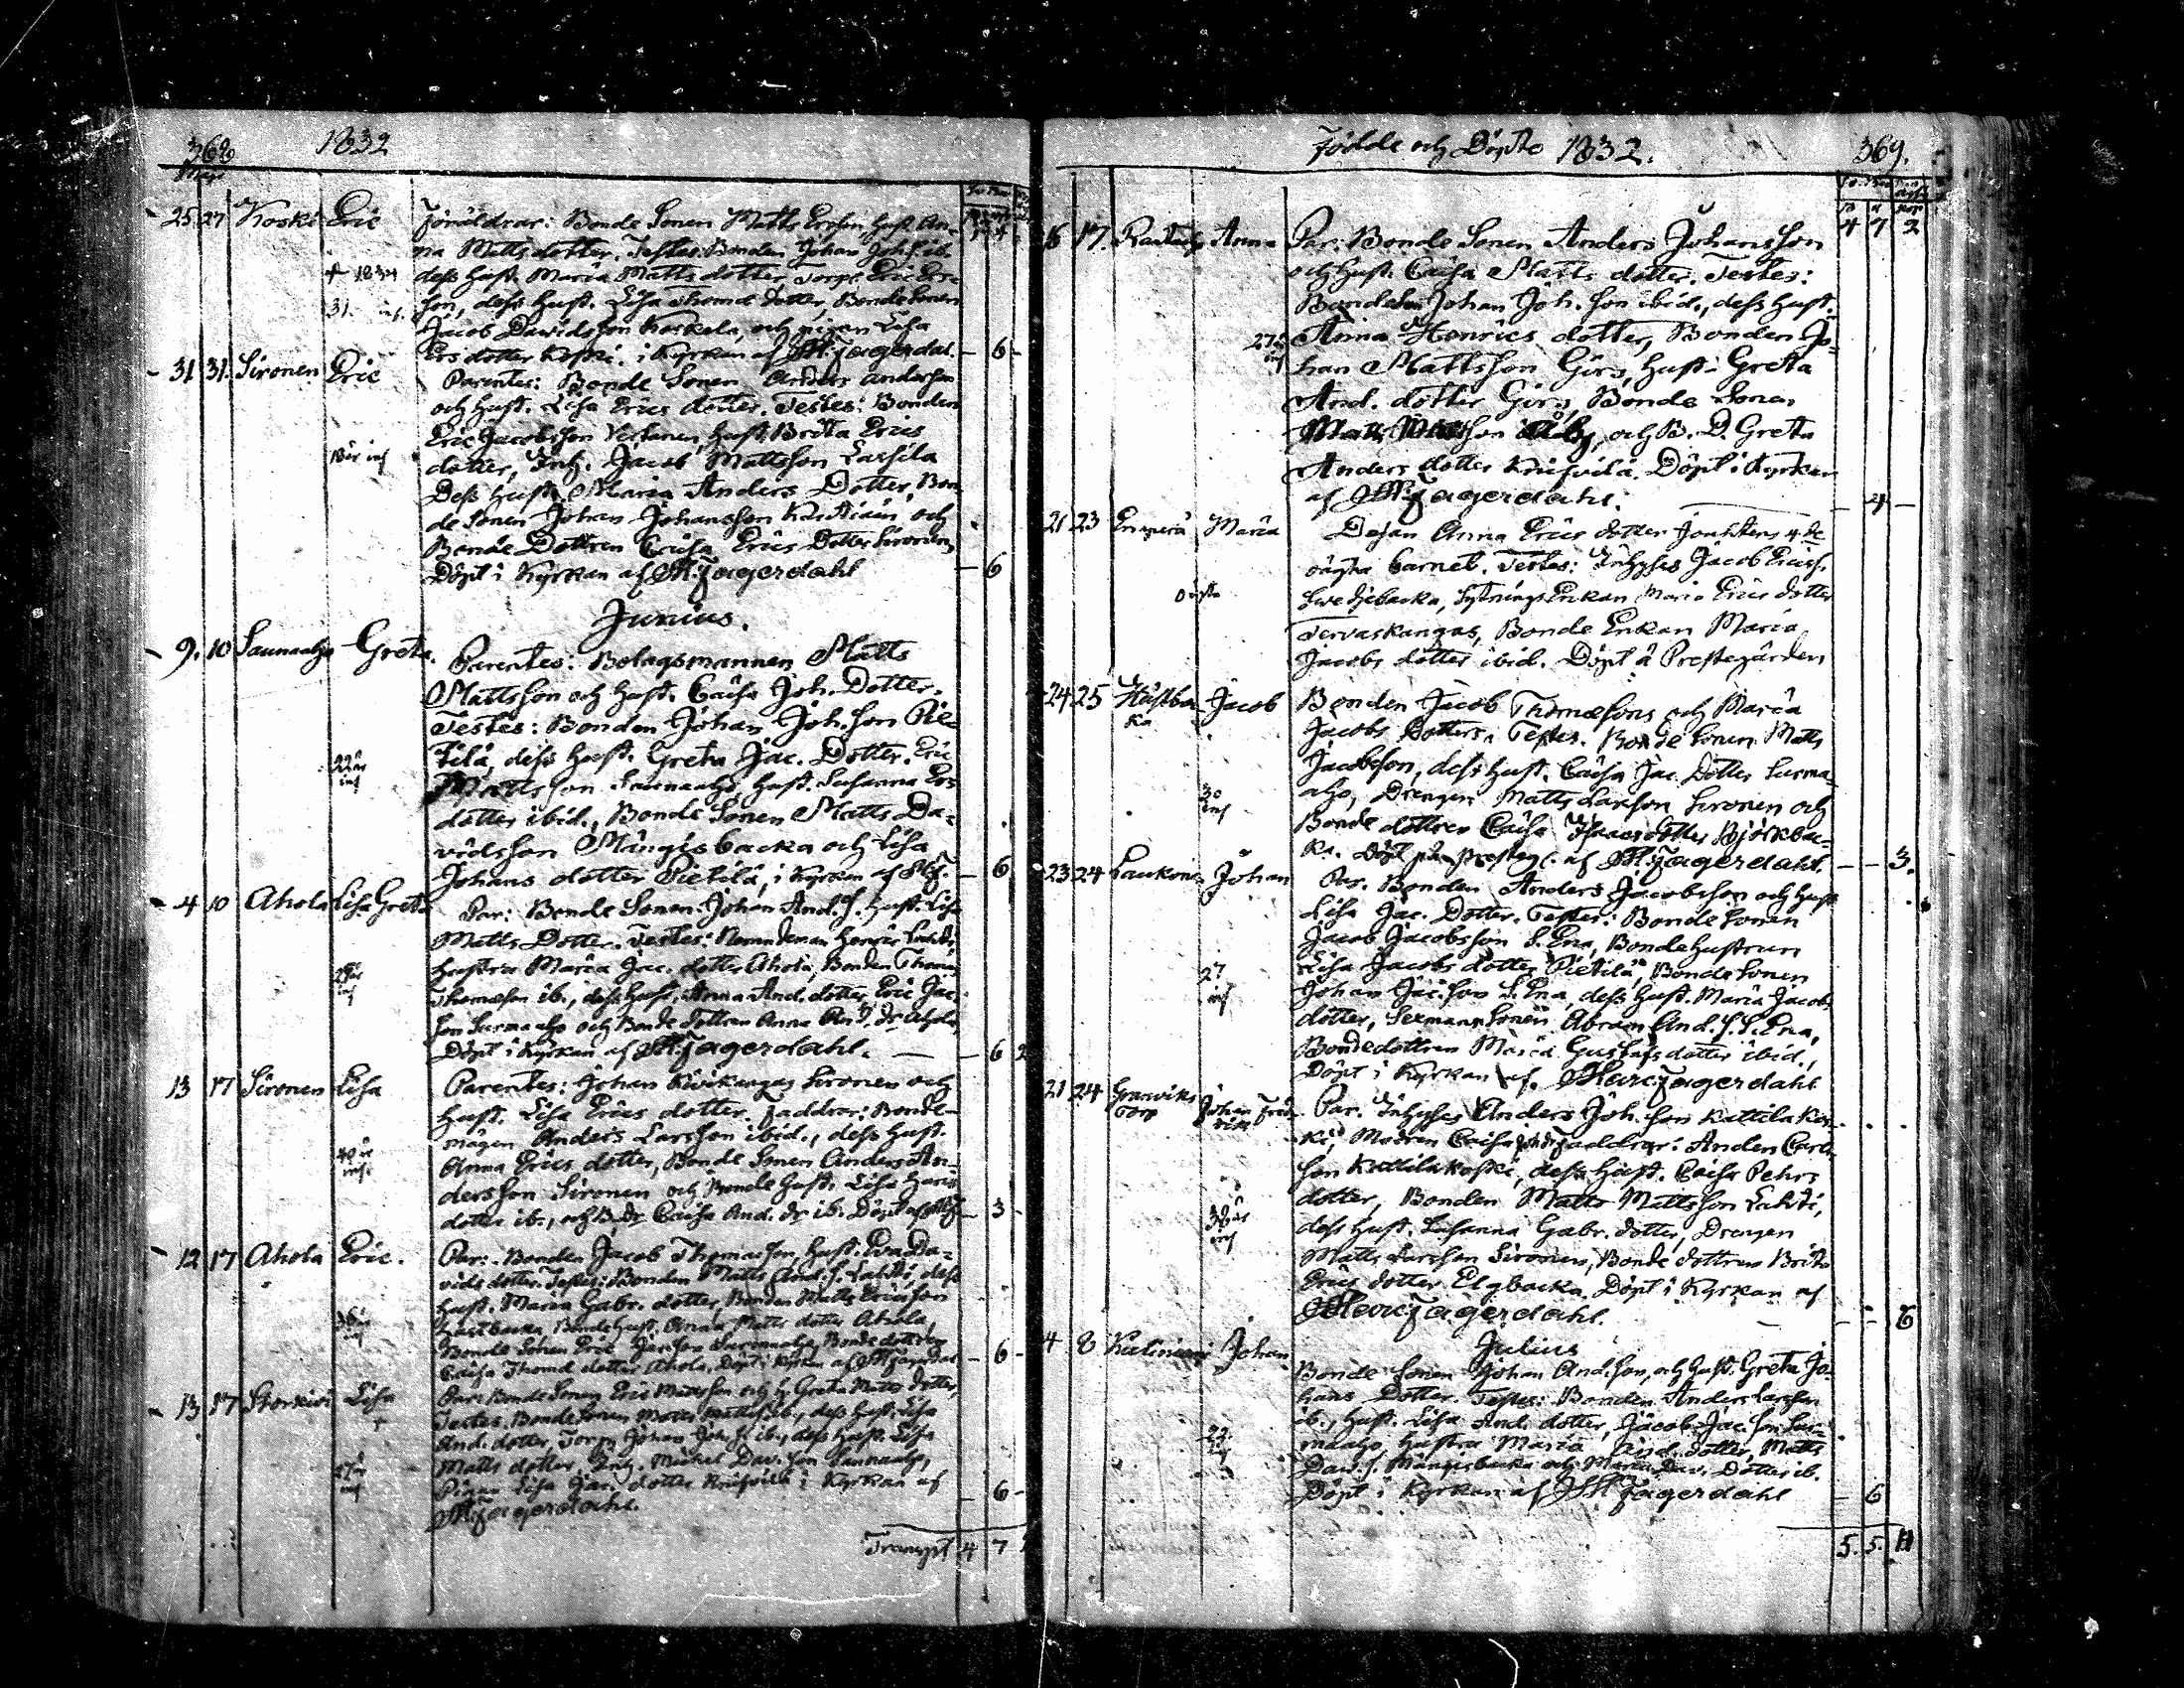 368 1832
Maji
25 27 Koski Eric Föräldrar: Bonde Sonen Matts Ersson Hust. An-
na Matts dotter. Testes: Bonden Johan Joh.S. ib.
† 1834 dess Hust. Maria Matts dotter, Torp. Eric Ers-
31. son, dess Hust. Lisa Thomæ dotter, Bonde Sonen
Jacob Davidsson Koskela, och pigan Lisa
Ers dotter Koski. i Kyrkan af Jagerdal. 6
31 31. Sironen Eric Parentes: Bonde Sonen Anders Andersson
och Hust. Lisa Erics dotter. Testes: Bonden
Eric Jacobsson Hust. Brita Erics
dotter, Inh. Jacob Mattsson Lassila
Dess Hust. Maria Anders Dotter, Bon-
de Sonen Johan Johansson och
Bonde Dottren Caisa Erics Dotter Sironen
Döpt i Kyrkan af Jagerdahl 6
Junius.
9. 10 Saunaaho Greta. Parentes: Bolagsmannen Matts
Mattsson och Hust. Caisa Joh. Dotter.
Testes: Bonden Johan Joh. Son Pie-
22 år tilä, dess Hust. Greta Jac. Dotter. Eric
inf Mattsson Saunaaho, Hust. Susanna Ers
dotter ibid., Bonde Sonen Matts Da-
vidsson Mångisbacka och Lisa
Johans dotter Pietilä, i Kyrkan af 6
4 10 Ahola Lisa Greta Par: Bonde Sonen Johan And. S. Hust. Lisa
Matts Dotter. Testes: Nämndeman Henric
Hustru Maria Jac. dotter Ahola, Bonden Thomas
Thomæson ib., dess Hust. Anna And. dotter, Eric Jac.
son Surmaaho och Bonde dottren Anna And. dr Ahola,
Döpt i Kyrkan af Jagerdahl. 6 2
13 17 Sironen Lisa Parentes: Johan Kivikangas Sironen och
Hust. Lisa Erics dotter. Faddrar: Bonde-
mågen Anders Larsson ibid., dess Hust.
40 år Anna Erics dotter, Bonde Sonen Anders An-
inf. dersson Sironen och Bonde Hust. Lisa
dotter ib., och B. dr Caisa And. dr ib. Döpt af 3
12 17 Ahola Eric. Par: Bonden Jacob Thomasson, Hust. Eva Da-
vids dotter. Testes: Bonden Matts And. S. Lahti, dess
Hust. Maria Gabr. dotter, Bonden Matts Ericsson
Hästbacka, Bonde Hust. Anna Matts dotter Ahola,
Bonde Sonen Eric Jacsson Surmaaho, Bonde dottren
Caisa Thomæ dotter Ahola. Döpt i Kyrkan af 6
13 17 Storkivi Lisa Par. Bonde Sonen Eric Mattsson och H. Greta Matts dotter,
† Testes. Bonde Sonen Matts Matts S. ib., dess Hust. Lisa
And. dotter, Torp. Johan Joh. S. ib., dess Hust. Lisa
27 år Matts dotter, Inh. Michel Dav. son Saunaaho,
inf Pigan Lisa dotter i Kyrkan af 6
Jagerdahl.
Transpt 4 7
Födde och Döpte 1832. 369.
4 7 2
16 17. Anna Par: Bonde Sonen Anders Johansson
och Hust. Caisa Matts dotter. Testes:
Bonden Johan Joh. Son ibid., dess Hust.
27 Anna Henrics dotter, Bonden Jo-
inf han Mattsson Girs, Hust. Greta
And. dotter Girs, Bonde Sonen
och B. D. Greta
Anders dotter Döpt i Kyrkan
af Jagerdahl. 4
21 23 Maria Dejan Anna Erics dotter 4:de
oägta barnet. Testes: Inhyses Jacob Erics S.
oägta Svedjebacka, Sytnings Enkan Maria Erics dotter
Tervaskangas, Bonde Enkan Maria
Jacobs dotter ibid. Döpt å Prestegården
24 25 Hästba- Jacob Bonden Jacob Thomæsons och Maria
ka Jacobs Dotters. Testes. Bonde Sonen Matts
Jacobsson, dess Hust. Caisa Jac. Dotter Surma-
30 aho, Drengen Matts Larsson Sironen och
inf Bonde dottren Caisa Isaacs dotter Björkbac-
ka. Döpt på Presteg. af Jagerdahl. 3.
23 24 Johan Par. Bonden Anders Jacobsson och Hust
Lisa Jac. Dotter. Testes: Bonde Sonen
Jacob Jacobsson S. Ena, Bonde Hustrun
27 Lisa Jacobs dotter Pietilä, Bonde Sonen
inf Johan Jac. Son S. Ena, dess Hust. Maria Jacobs
dotter, Sonen Abram And. S. S. Ena,
Bonde dottren Maria Gustafs dotter ibid.,
Döpt i Kyrkan af. Jagerdahl
21 24 Granviks Johan Fred- Par. Inhyses Anders Joh. Son Kattilakos-
torp ric ki, Modren Caisa Faddrar: Anders Carls-
son Kattilakoski, dess Hust. Caisa Pehrs
dotter, Bonden Matts Mattsson Lahti,
dess Hust. Susanna Gabr. dotter, Drengen
Matts Larsson Sironen, Bonde dottren Brita
Erics dotter Elgbacka Döpt i Kyrkan af
Jagerdahl. 6
Julius
4 8 Johan Bonde Sonen Johan And. Son, och Hust. Greta Jo-
hans Dotter. Testes: Bonden Anders Larsson
ib., Hust. Lisa And. dotter, Jacob Jac. Son Sur-
22 maaho, Hustru Maria And. dotter, Matts
inf Dav. S. Mångisbacka och Maria Dav. Dotter ib.
Döpt i Kyrkan af Jagerdahl 6
5. 5. 11